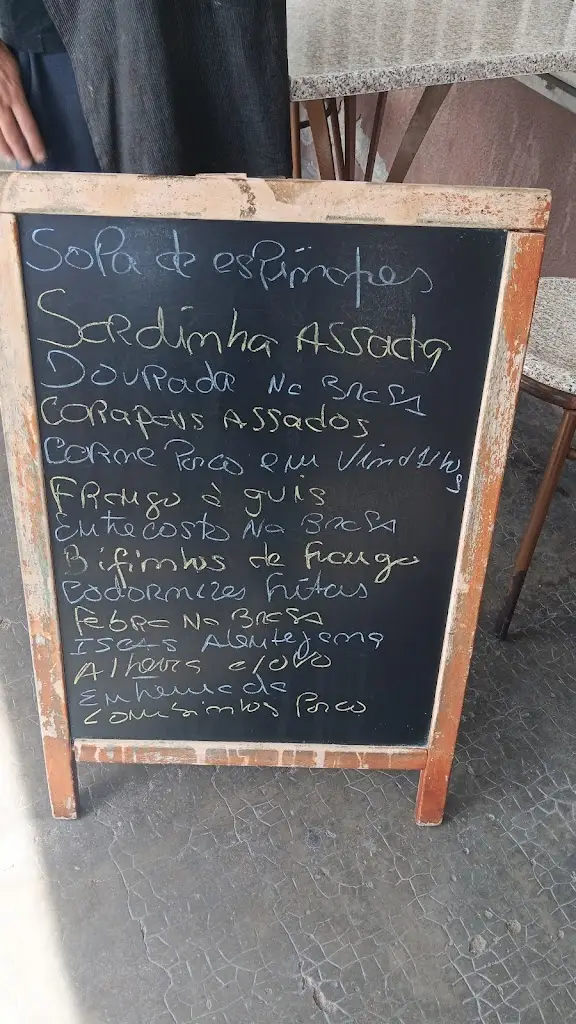 Sopa de espinafres
Sardinha Assada
Dourada Na Brasa
Carapaus Assados
Carne Porco em Vinad'alhos
Frango à guia
Entrecosto Na Brasa
Bifinhos de frango
Codornizes fritas
Febra Na Brasa
Iscas Alentejana
Alheira c/ovo
Entremeada
Porco